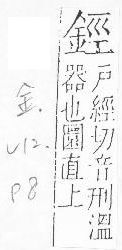 鋞
戶經切音刑溫
器也圜直上
金.
V12.
P8